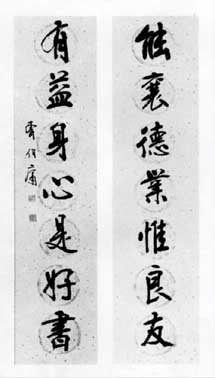 能襄德業惟良友
有益身心是好書